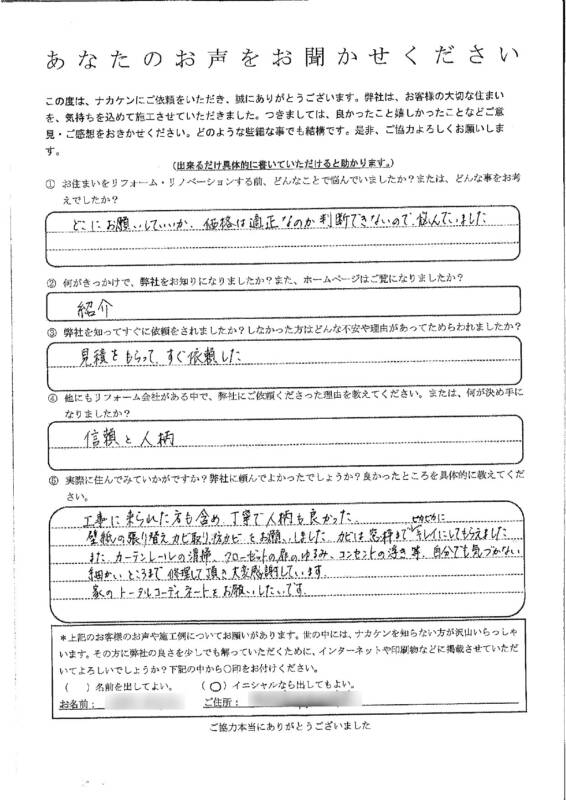 あなたのお声をお聞かせください
この度は、ナカケンにご依頼をいただき、誠にありがとうございます。弊社は、お客様の大切な住まい
を、気持ちを込めて施工させていただきました。つきましては、良かったこと嬉しかったことなどご意
見・ご感想をおきかせください。どのような些細な事でも結構です。是非、ご協力よろしくお願いしま
す。
（出来るだけ具体的に書いていただけると助かります。）
① お住まいをリフォーム・リノベーションする前、どんなことで悩んでいましたか？または、どんな事をお考
えでしたか？
どこにお願いしていいか、価格は適正なのか判断できないので、悩んでいました
② 何がきっかけで、弊社をお知りになりましたか？また、ホームページはご覧になりましたか？
紹介
③ 弊社を知ってすぐに依頼をされましたか？しなかった方はどんな不安や理由があってためらわれましたか？
見積をもらって、すぐ依頼した
④ 他にもリフォーム会社がある中で、弊社にご依頼くださった理由を教えてください。または、何が決め手に
なりましたか？
信頼と人柄
⑤ 実際に住んでみていかがですか？弊社に頼んでよかったでしょうか？良かったところを具体的に教えてくだ
さい。
工事に来られた方も含め、丁寧で人柄も良かった。
壁紙の張り替え、カビ取り、抗カビをお願いしました。カビは窓枠までピカピカにキレイにしてもらえました
また、カーテンレールの清掃、クローゼットの扉のゆるみ、コンセントの浮き等、自分でも気づかない
細かいところまで修理して頂き大変感謝しています。
家のトータルコーディネートをお願いしたいです。
＊上記のお客様のお声や施工例についてお願いがあります。世の中には、ナカケンを知らない方が沢山いらっしゃ
います。その方に弊社の良さを少しでも解っていただくために、インターネットや印刷物などに掲載させていただ
いてよろしいでしょうか？下記の中から〇印をお付けください。
（　）名前を出してよい。　（〇）イニシャルなら出してもよい。
お名前：　ご住所：
ご協力本当にありがとうございました